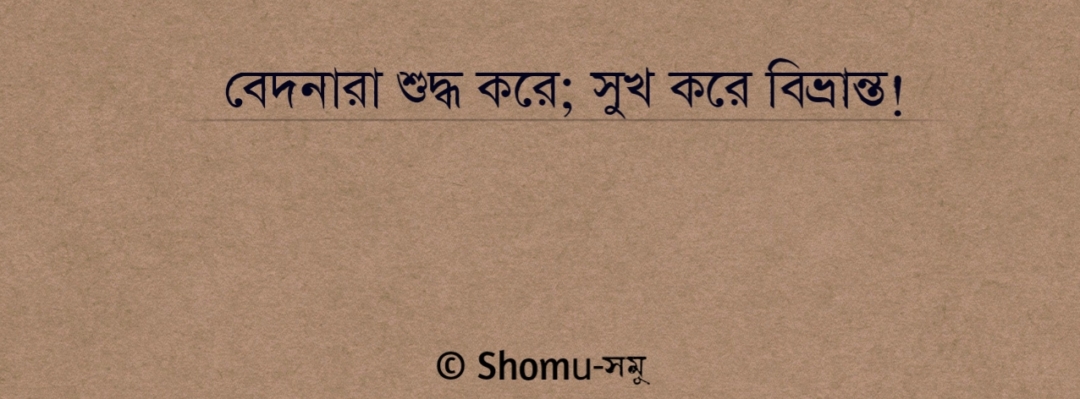 বেদনারা শুদ্ধ করে; সুখ করে বিভ্রান্ত!
© Shomu-সমু